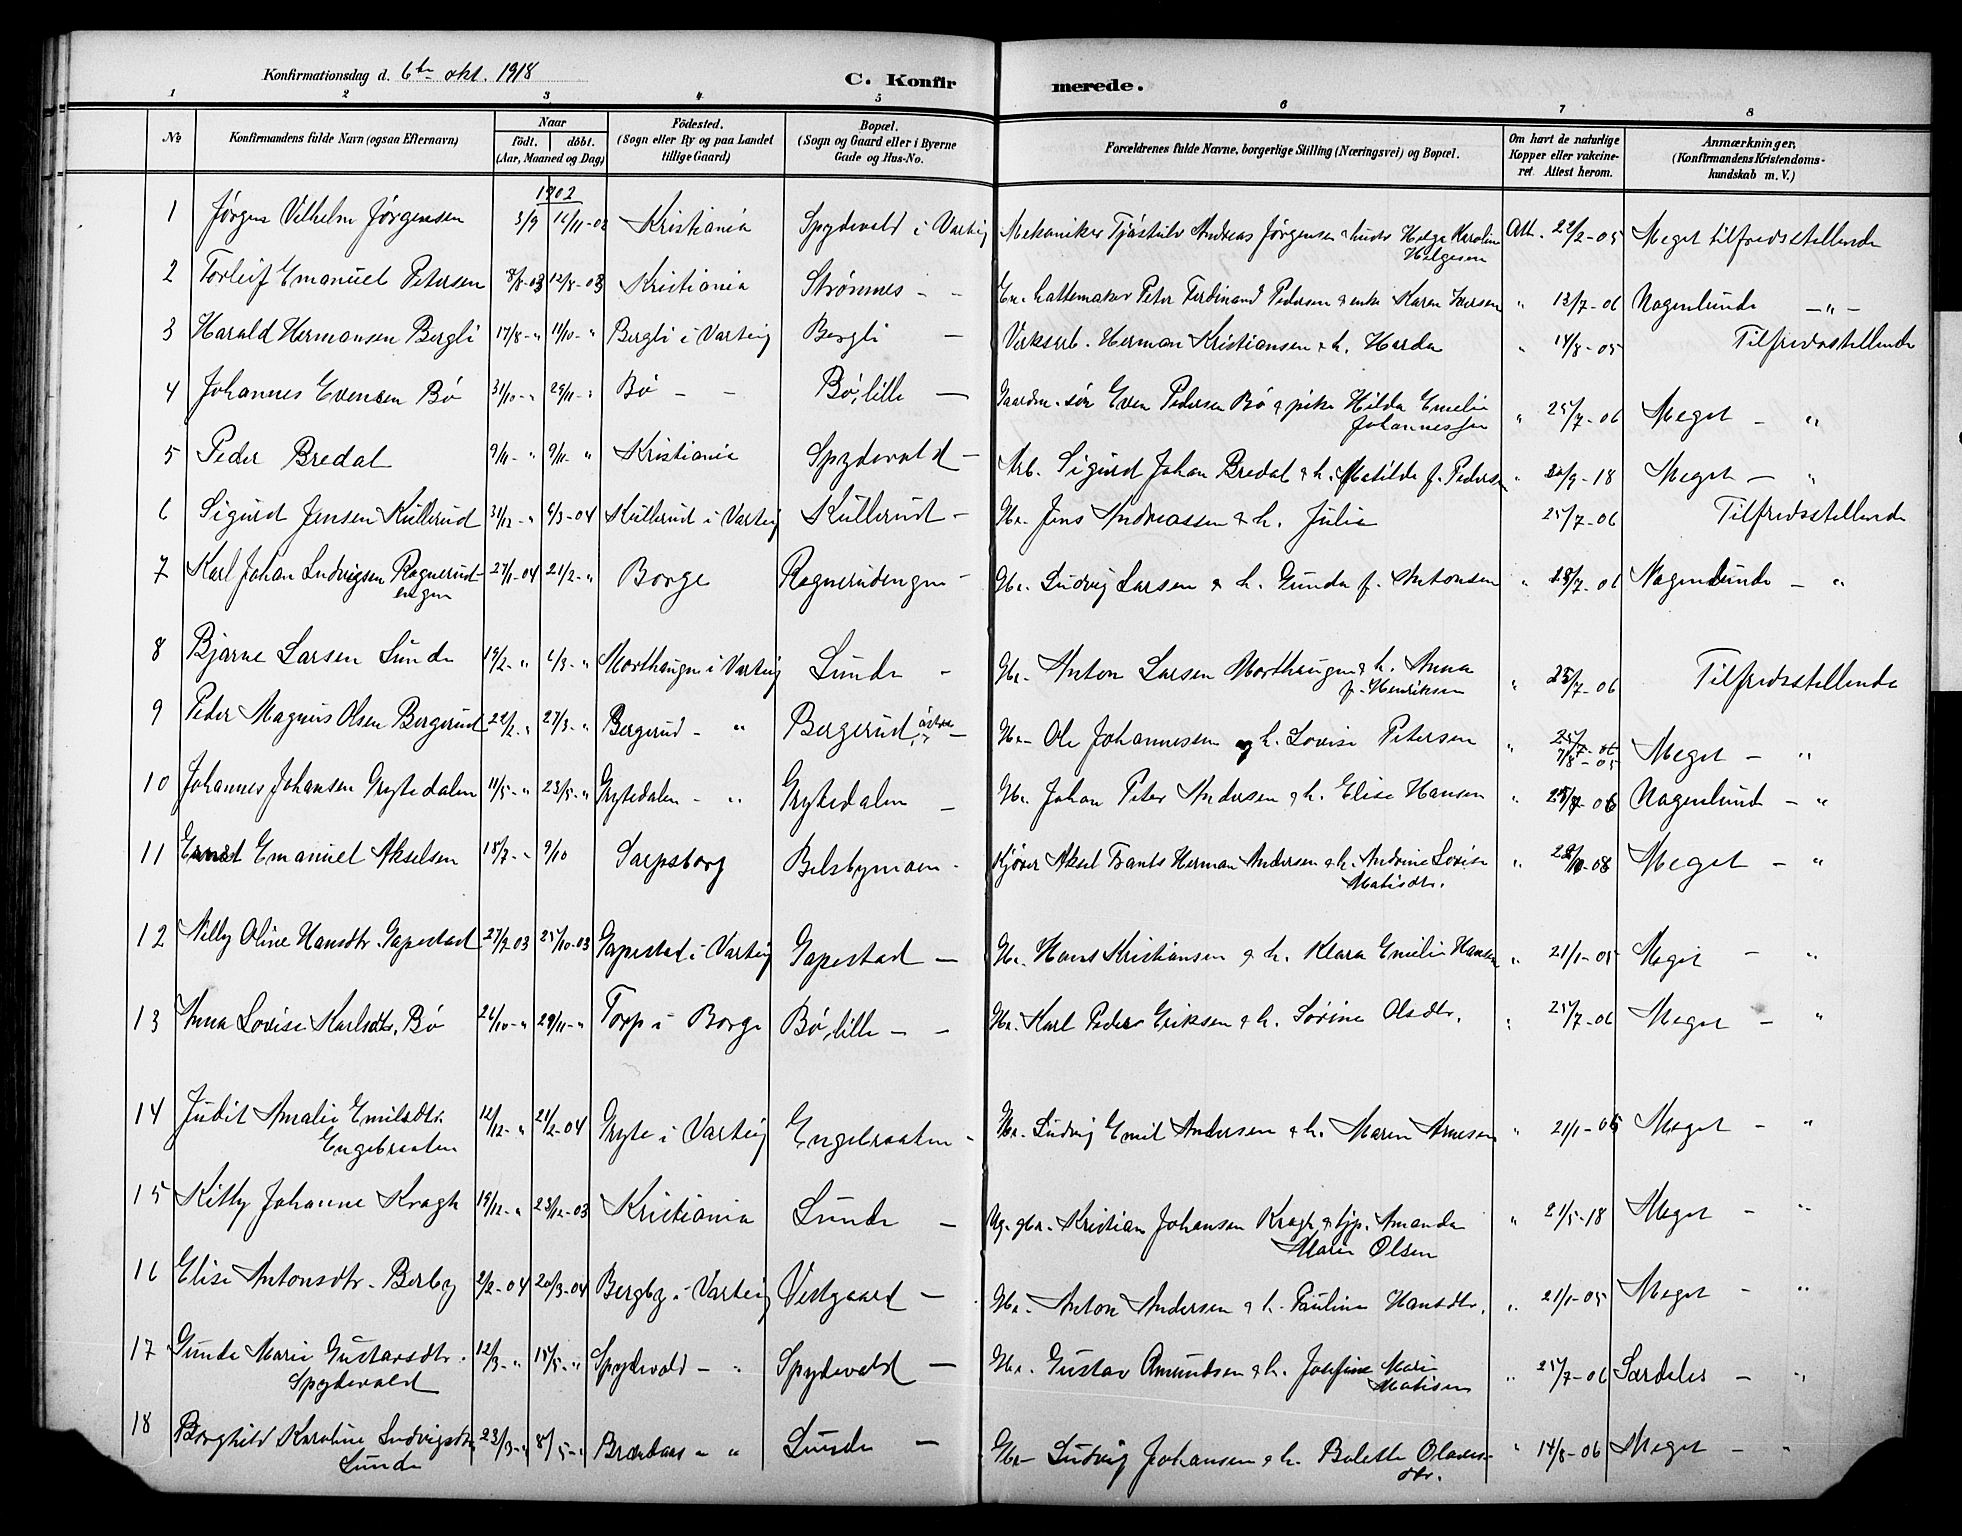 Konfirmationsdag d. 6te okt. 1918
C. Konfir merede.
1 2 3 4 5 6 7 8
No
Konfirmandens fulde Navn (ogsaa Efternavn)
Naar
födt. döbt.
(Aar, Maaned og Dag)
Födested.
(Sogn eller By og paa Landet
tillige Gaard)
Bopæl.
(Sogn og Gaard eller i Byerne
Gade og Hus-No.
Forældrenes fulde Navne, borgerlige Stilling (Næringsvei) og Bopæl.
Om havt de naturlige
Kopper eller vakcine-
ret. Attest herom.
Anmærkninger,
(Konfirmandens Kristendoms-
kundskab m. V.)
1902
1 Jørgen Vilhelm Jørgensen 3/9 16/11-02 Kristiania Spydevold i Varteig Mekaniker Tjøstulv Andreas Jørgensen & hustr Helga Karoline Att. 22/2-05 Meget tilfredsstillende
Helgesen
2 Torleif Emanuel Petersen 8/8-03 12/8-03 Kristiania Strømnes - - Em. hattemaker Peter Ferdinand Pedersen & enke Karen Iversen " 13/7-06 Nogenlunde -"-
3 Harald Hermansen Bergli 17/8-" 11/10-" Bergli i Varteig Bergli - Verksarb. Herman Kristiansen & h. Harda " 14/8-05 Tilfredsstillende
4 Johannes Evensen Bø 31/10-" 29/11-" Bø - - Bø, lille - Gaardm. søn Even Pedersen Bø & pike Hilda Emilie " 25/7-06 Meget - "
Johannessen
5 Peder Bredal 9/11-" 9/11-" Kristiania Spydevold - Arb. Sigurd Johan Bredal & h. Matilde f. Pedersen " 20/9-18 Meget - "
6 Sigurd Jensen Kullerud 31/12-" 6/3-04 Kullerud i Varteig Kullerud - Gbr. Jens Andreassen & h. Julie 25/7-06 Tilfredsstillende
7 Karl Johan Ludvigsen Ragnerud- 27/1-04 21/2-" Borge Ragnerudengen - Gbr. Ludvig Larsen & h. Gunda f. Antonsen " 28/7-06 Nogenlunde - "
engen
8 Bjarne Larsen Lunde 19/2-" 6/3-" Morthaugen i Varteig Lunde - Gbr. Anton Larsen Morthaugen & h. Anna " 25/7-06 Tilfredsstillende
f. Henriksen
9 Peder Magnus Olsen Bergerud 22/2-" 27/3-" Bergerud - " Bergerud, østre - Gbr. Ole Johannessen og h. Lovise Petersen " 25/7-06 Meget - "
7/8-05
10 Johannes Johansen Grytedalen 11/5-" 23/5-" Grytedalen - " Grytedalen - Gbr. Johan Peter Andersen & h. Elise Hansen " 25/7-06 Nogenlunde - "
11 Ernst Emanuel Akselsen 18/7-" 9/10 Sarpsborg Belsbymoen - Kjører Aksel Frants Herman Andersen & h. Andrine Lovise " 28/10-08 Meget - "
Matisdtr.
12 Nelly Oline Hansdtr. Gapestad 27/7-03 25/10-03 Gapestad i Varteig Gapestad - Gbr. Hans Kristiansen & h. Klara Emilie Hansen " 21/1-05 Meget - "
13 Anna Lovise Karlsdtr. Bø 26/10-" 29/11-" Torp i Borge Bø, lille - - Gbr. Karl Peder Eriksen & h. Sørine Olsdtr. " 25/7-06 Meget - "
14 Judit Amalie Emilsdtr. 12/12-" 21/2-04 Gryte i Varteig Engebraaten - Gbr. Ludvig Emil Andersen & h. Maren Arnesen " 21/1-05 Meget - "
Engebraaten
15 Kitty Johanne Kragh 19/12-" 23/12-03 Kristiania Lunde - Ug. gbr. Kristian Johansen Kragh & tjp. Amanda " 21/5-18 Meget - "
Marie Olsen
16 Elise Antonsdtr. Berby 2/2-04 20/3-04 Bergby i Varteig Vestgaard - Gbr. Anton Andersen & h. Pauline Hansdtr. " 21/1-05 Meget - "
17 Gunda Marie Gustavsdtr. 12/3-" 15/5-" Spydevold - " Spydevold - Gbr. Gustav Amundsen & h. Josefine Marie " 25/7-06 Særdeles - "
Spydevold Matisen
18 Borghild Karoline Ludvigsdtr. 23/3-" 8/5-" Brændaas - " Lunde - Gbr. Ludvig Johansen & h. Bolette Olaves- " 14/8-06 Meget - "
Lunde dtr.